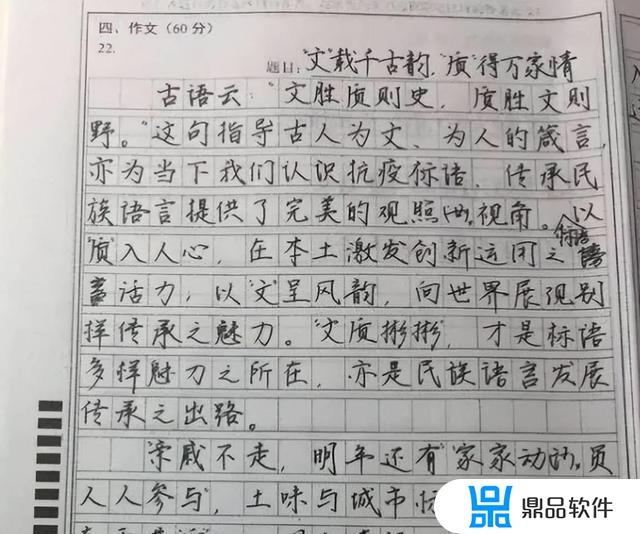 四、作文(60分)
22.
题目:"文"载千古韵,"质"得万家情
古语云:"文胜质则史,质胜文则
野。"这句指导古人为文、为人的箴言,
亦为当下我们认识抗疫标语、传承民
族语言提供了完美的观照视角。以
"质"入人心,在本土激发创新运用之标语
活力,以"文"呈风韵,向世界展现别
样传承之魅力。"文质彬彬",才是标语
多样魅力之所在,亦是民族语言发展
传承之出路。
亲戚不走,明年还有"家家动员
人人参与,土味与城市标
鼎品软件